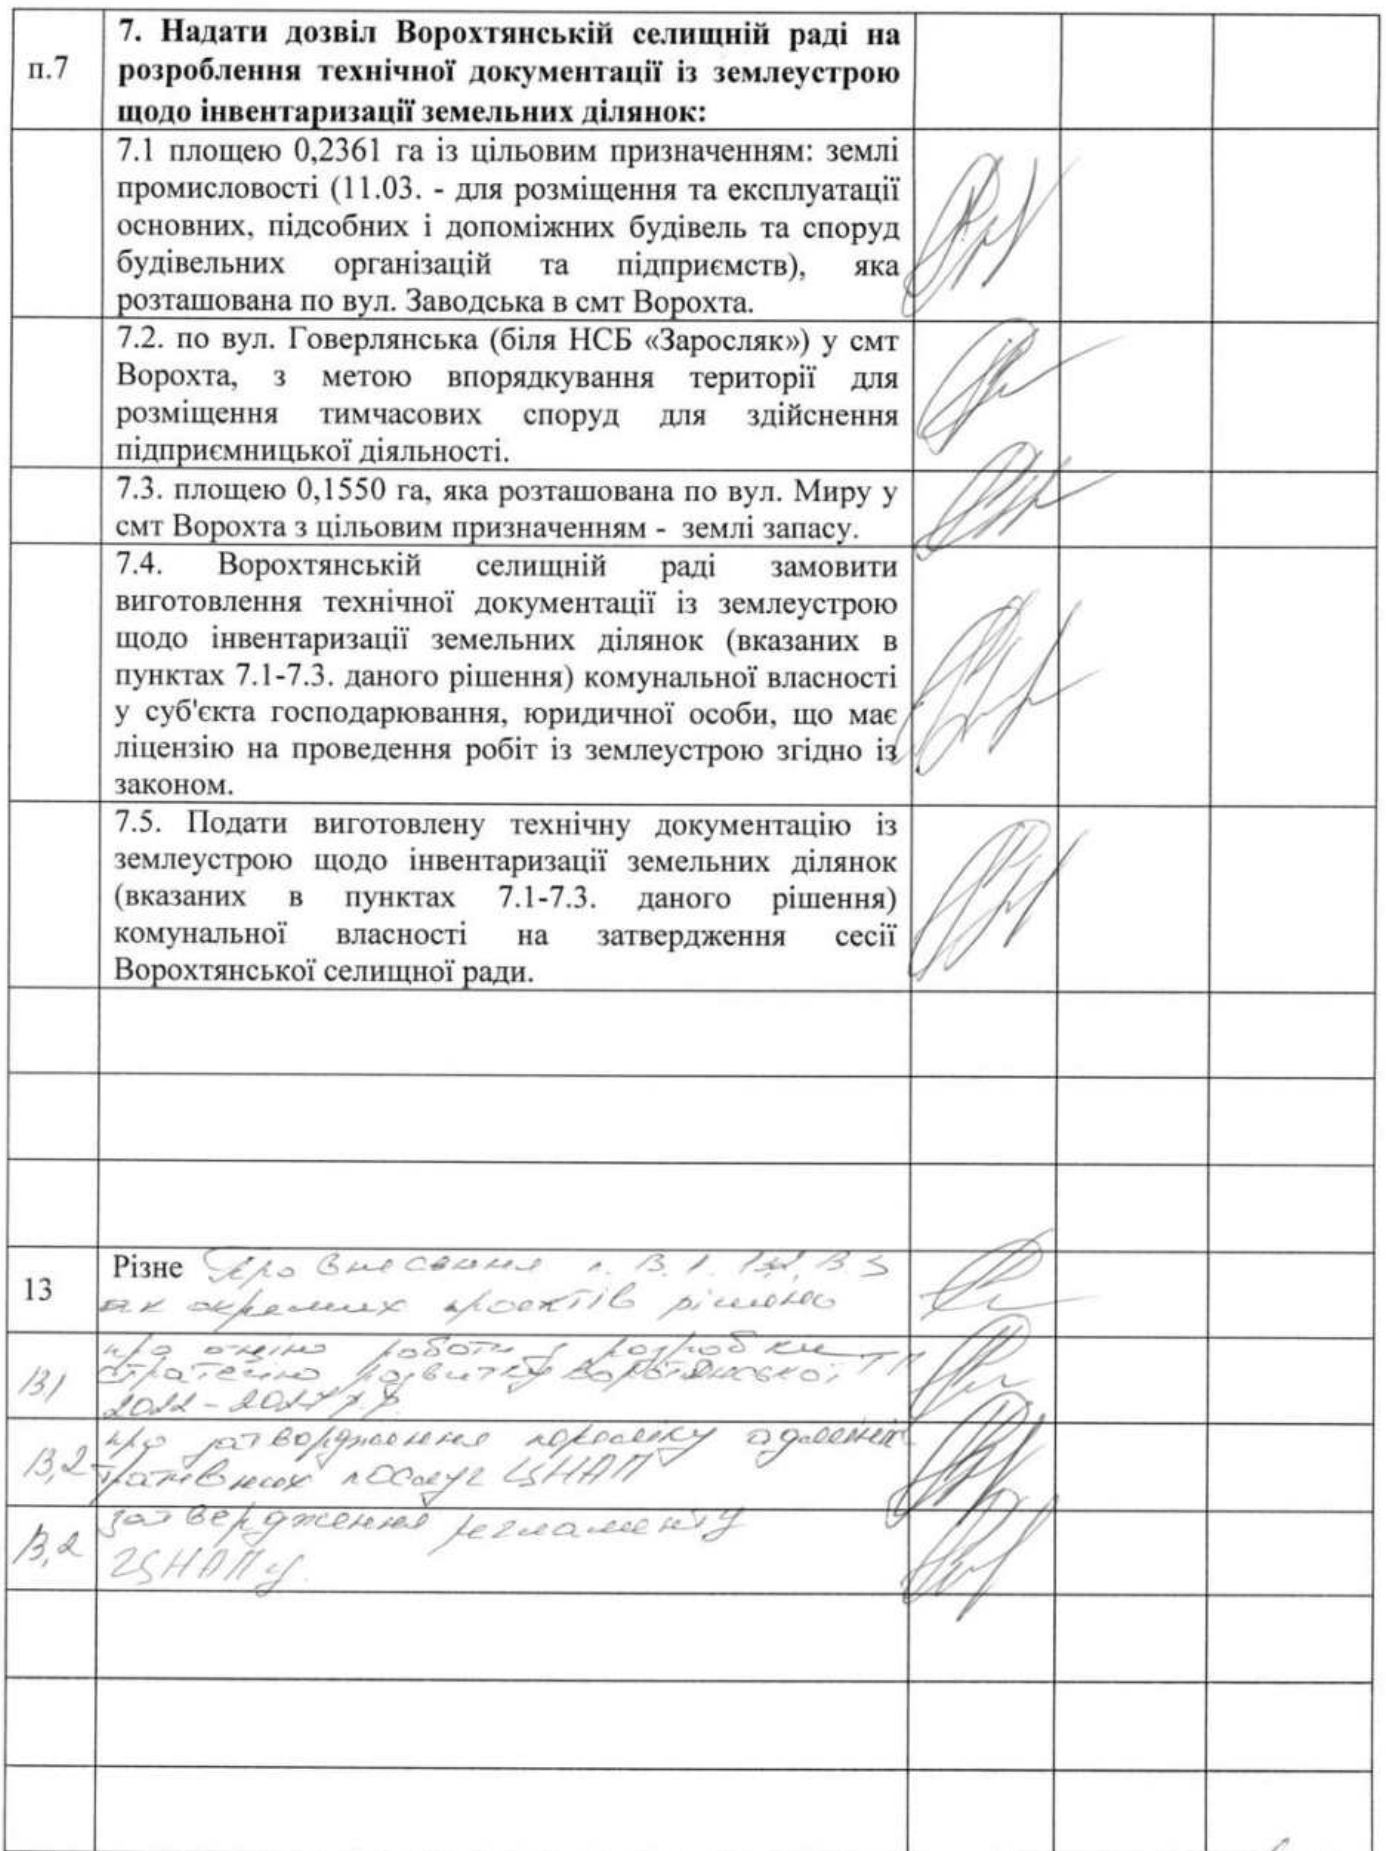 п.7
7. Надати дозвіл Ворохтянській селищній раді на
розроблення технічної документації із землеустрою
щодо інвентаризації земельних ділянок:
7.1 площею 0,2361 га із цільовим призначенням: землі
промисловості (11.03. - для розміщення та експлуатації
основних, підсобних і допоміжних будівель та споруд
будівельних організацій та підприємств), яка
розташована по вул. Заводська в смт Ворохта.
7.2. по вул. Говерлянська (біля НСБ «Заросляк») у смт
Ворохта, з метою впорядкування території для
розміщення тимчасових споруд для здійснення
підприємницької діяльності.
7.3. площею 0,1550 га, яка розташована по вул. Миру у
смт Ворохта з цільовим призначенням - землі запасу.
7.4. Ворохтянській селищній раді замовити
виготовлення технічної документації із землеустрою
щодо інвентаризації земельних ділянок (вказаних в
пунктах 7.1-7.3. даного рішення) комунальної власності
у суб'єкта господарювання, юридичної особи, що має
ліцензію на проведення робіт із землеустрою згідно із
законом.
7.5. Подати виготовлену технічну документацію із
землеустрою щодо інвентаризації земельних ділянок
(вказаних в пунктах 7.1-7.3. даного рішення)
комунальної власності на затвердження сесії
Ворохтянської селищної ради.
13
Різне Про внесення п. 13.1.
як окремих проектів рішень
13,1
про роботи розробки
розвитку Ворохтянської ТГ
13,2
про затвердження переліку адмініс
тративних послуг ЦНАП
13,2
затвердження регламенту
ЦНАПу.